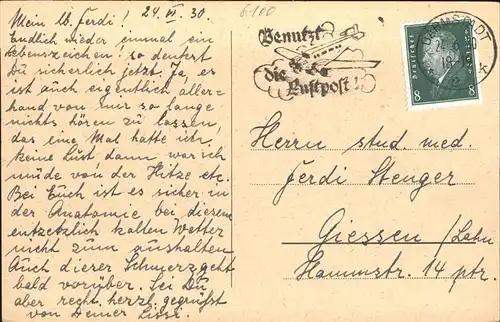 Mein lb. Ferdi! 24. VI. 30.
Endlich wieder einmal ein
Lebenszeichen! so denkst
Du sicherlich jetzt. Ja, es
ist auch eigentlich aller-
hand von mir so lange
nichts hören zu lassen,
das eine Mal hatte ich
keine Lust dann war ich
müde von der Hitze etc.
Bei Euch ist es sicher in
der Anatomie bei diesem
entzetzlich kalten Wetter
nicht zum aushalten
Auch dieser Schmerz geht
bald vorüber. Sei Du
aber recht herzl. gegrüßt
von Deiner Lissi.
6100
Benutzt
die
Luftpost!
DARMSTADT
Deutsches Reich
8 8
Herrn stud. med.
Ferdi Stenger
Giessen/Lahn
Hammstr. 14 ptr.